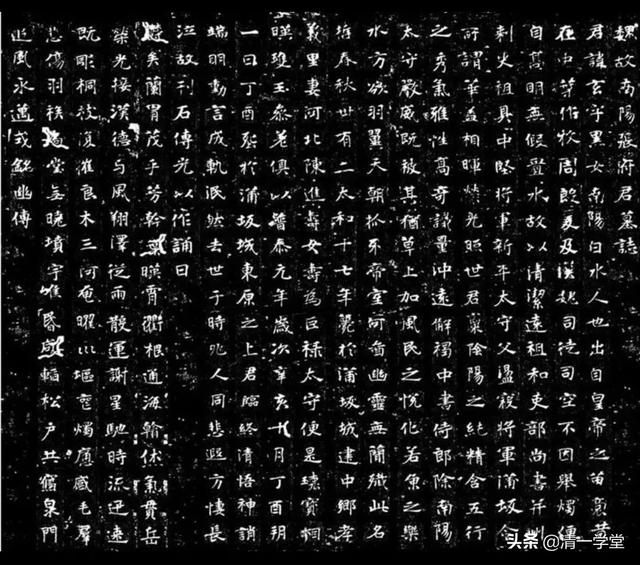 魏故南陽張府君墓誌
君諱玄字黑女南陽白水人也出自皇帝之苗裔昔
在中葉作牧周殷爰及漢魏司徒司空不因舉燭便
自高明無假置水故以清潔遠祖和吏部尚書并州
刺史祖具中堅將軍新平太守父盪寇將軍蒲坂令
所謂華蓋相暉榮光照世君稟陰陽之純精含五行
之秀氣雅性高奇識量沖遠解褐中書侍郎除南陽
太守嚴威既被其猶草上加風民之悅化若魚之樂
水方欲羽翼天朝抓牙帝室何啚幽靈無簡殲此名
哲春秋卅有二太和十七年薨於蒲坂城建中鄉孝
義里妻河北陳進壽女壽為巨祿太守便是瓌寶相
暎瓊玉參差俱以普泰元年歲次辛亥十月丁酉朔
一日丁酉葬於蒲坂城東原之上君臨終清悟神誚
端明動言成軌泯然去世于時兆人同悲遐方悽長
泣故刊石傳光以作誦曰
鬱矣蘭胄茂乎芳幹葉暎霄衢根通海翰休氣貫岳
榮光接漢德与風翔澤從雨散運謝星馳時流迅速
既彫桐枝復摧良木三河奄曜巛塸燭痛感毛羣
悲傷羽族扃堂無曉墳宇唯昏咸韜松戶共寢泉門
追風永邁式銘幽傳
头条@清一学堂